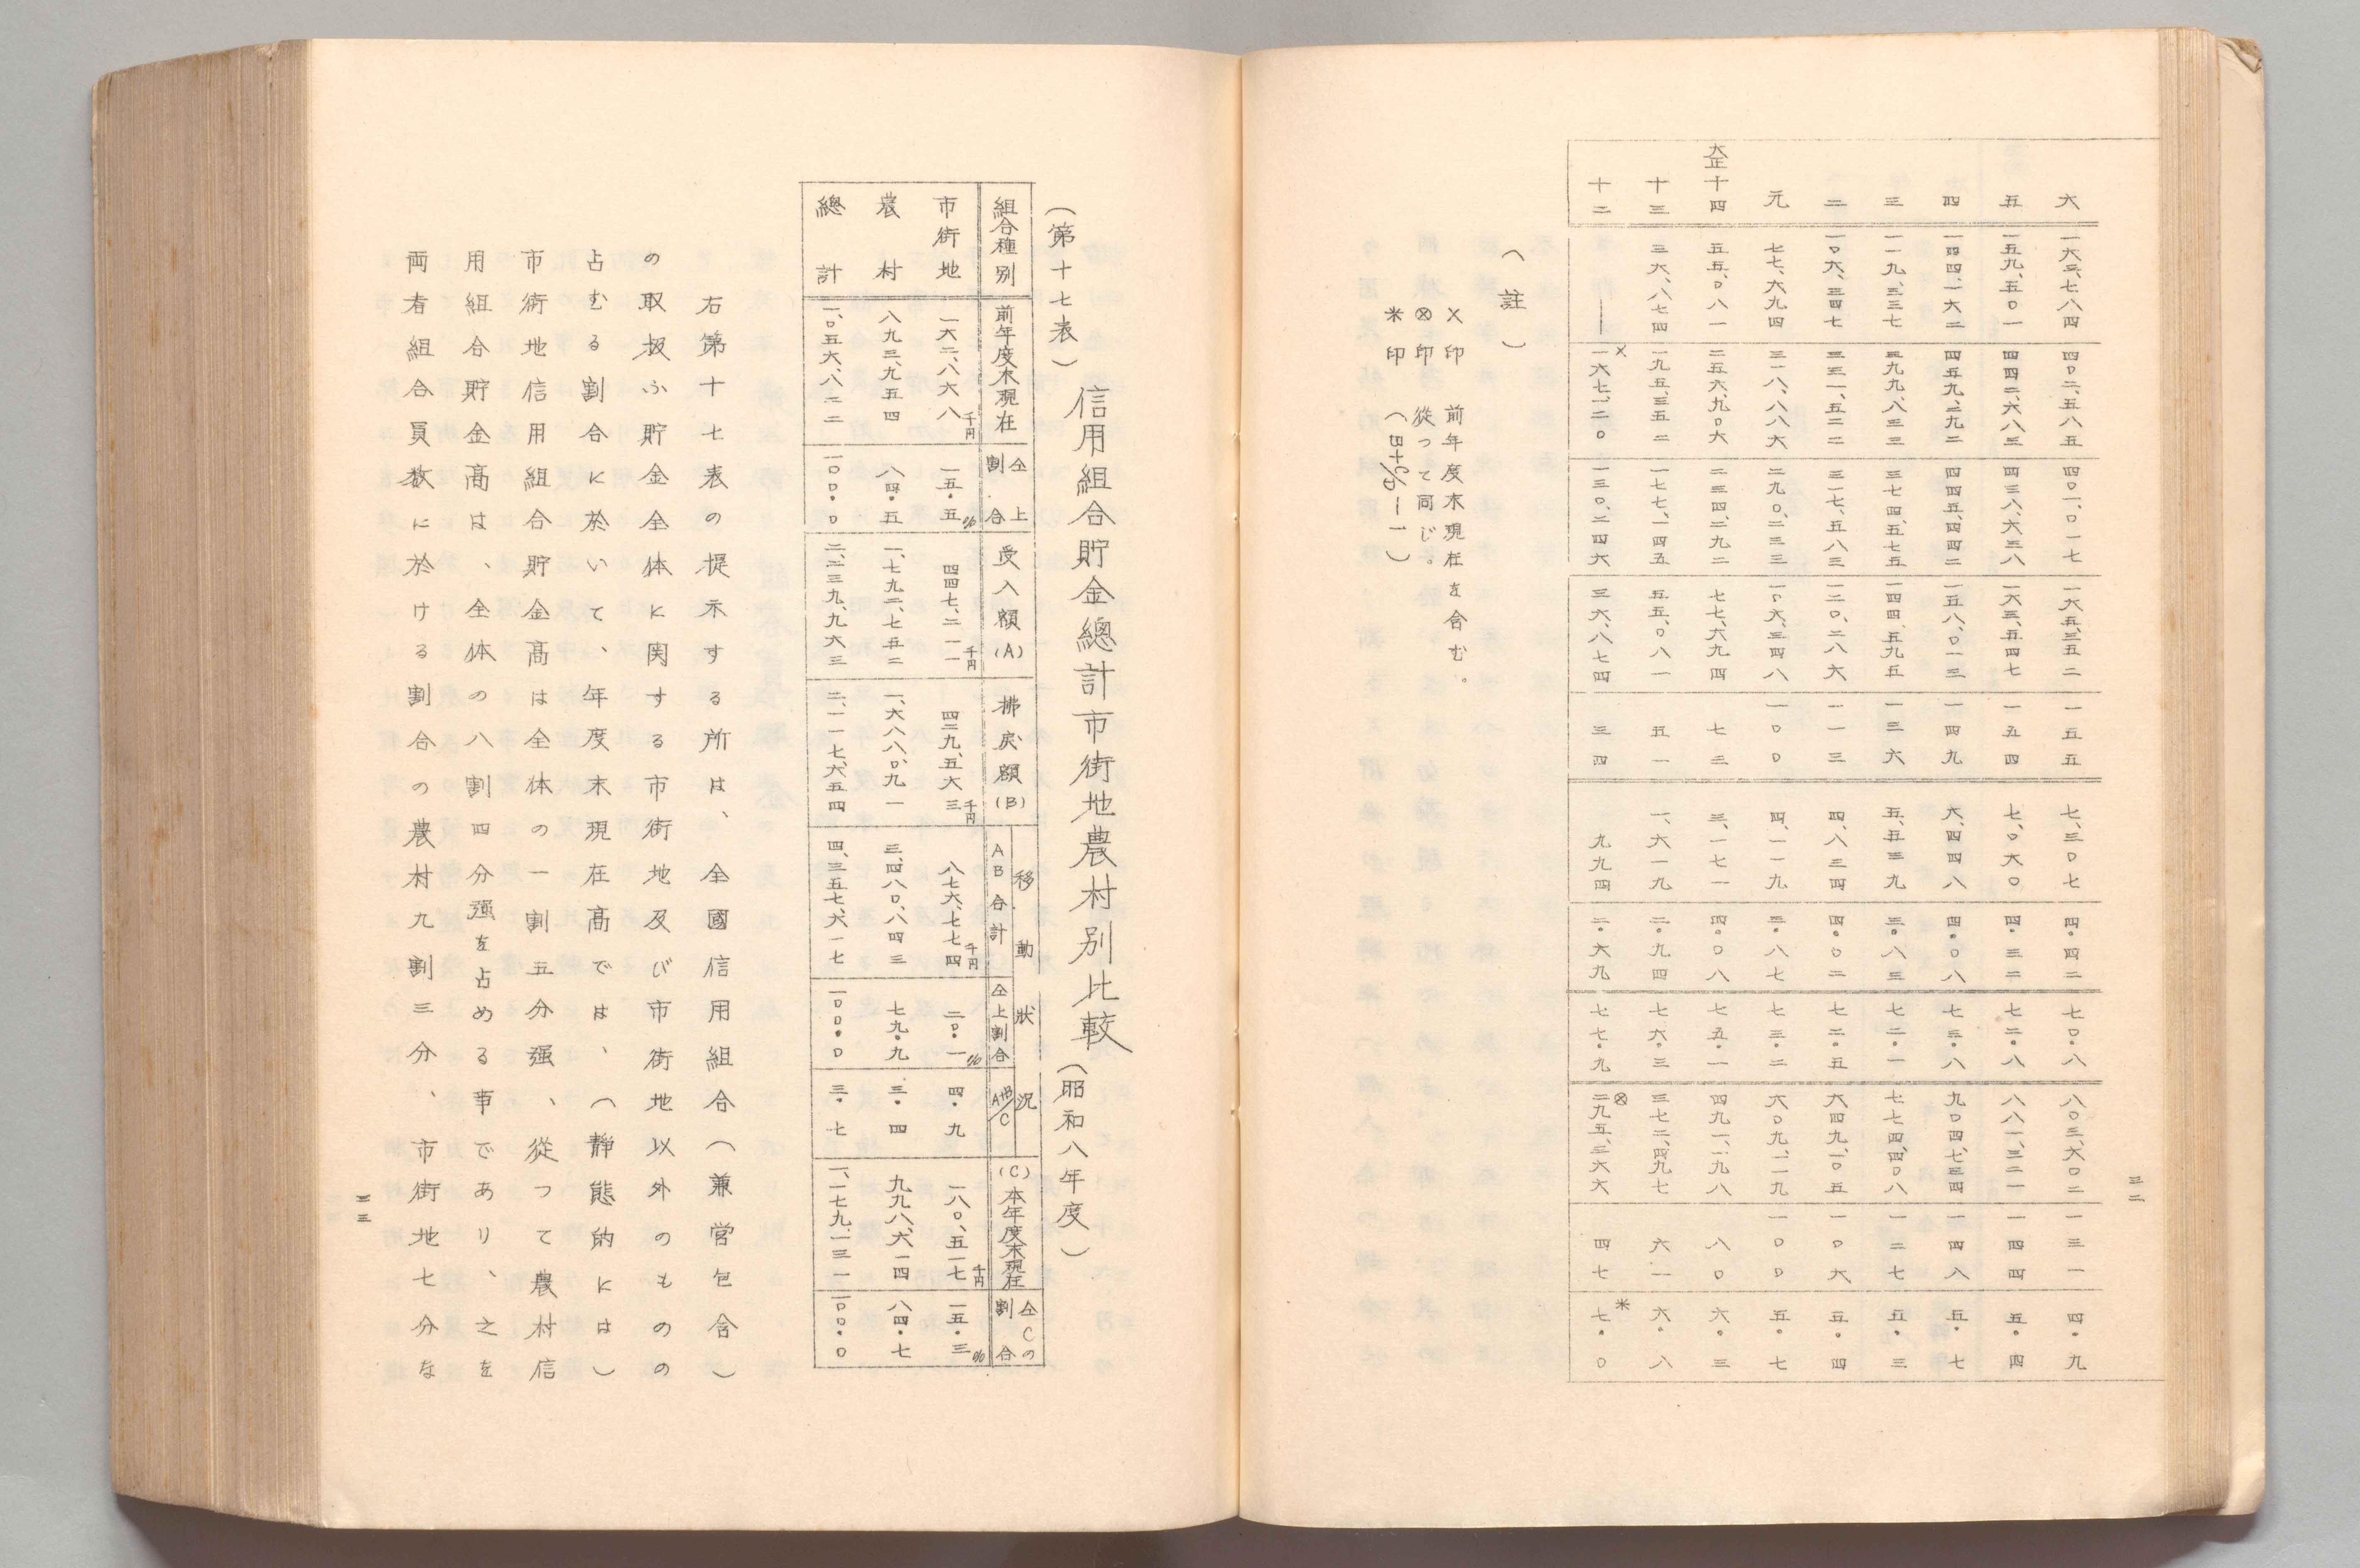 三二
六 一六三、七八四 四〇二、五八五 四〇一、〇一七 一六五、三五二 一五五 七、三〇七 四・四二 七〇・八 八〇三、六〇二 一三一 四・九
五 一五九、五〇一 四四二、六八三 四三八、六三八 一六三、五四七 一五四 七、〇六〇 四・三二 七二・八 八八一、三二一 一四四 五・四
四 一四四、一六二 四五九、二九二 四四五、四四二 一五八、〇一三 一四九 六、四四八 四・〇八 七三・八 九〇四、七三四 一四八 五・七
三 一一九、三三七 三九九、八三三 三七四、五七五 一四四、五九五 一三六 五、五三九 三・八三 七二・一 七七四、四〇八 一二七 五・三
二 一〇六、三四七 三三一、五二二 三一七、五八三 一二〇、二八六 一一三 四、八三四 四・〇二 七二・五 六四九、一〇五 一〇六 五・四
元 七七、六九四 三一八、八八六 二九〇、二三三 一〇六、三四八 一〇〇 四、一一九 三・八七 七三・二 六〇九、一一九 一〇〇 五・七
大正十四 五五、〇八一 二五六、九〇六 二三四、二九二 七七、六九四 七三 三、一七一 四・〇八 七五・一 四九一、一九八 八〇 六・三
十三 三六、八七四 一九五、三五二 一七七、一四五 五五、〇八一 五一 一、六一九 二・九四 七六・三 三七二、四九七 六一 六・八
十二 ―― ×一六七、一二〇 一三〇、二四六 三六、八七四 三四 九九四 二・六九 七七・九 ⊗二九五、三六六 四七 ＊七・〇
（註）
×印 前年度末現在を含む。
⊗印 従つて同じ。
＊印 （B+C/D－1）
（第十七表） 信用組合貯金總計市街地農村別比較（昭和八年度）
組合種別 前年度末現在 仝上割合 移動狀況 受入額(A) 拂戻額(B) AB合計 仝上割合 A+B/C (C)本年度末現在 仝Cの割合
市街地 一六二、八六八千円 一五・五% 四四七、二一一千円 四二九、五六三千円 八七六、七七四千円 二〇・一% 四・九 一八〇、五一七千円 一五・三%
農村 八九三、九五四 八四・五 一、七九二、七五二 一、六八八、〇九一 三、四八〇、八四三 七九・九 三・四 九九八、六一四 八四・七
總計 一、〇五六、八二二 一〇〇・〇 二、二三九、九六三 二、一一七、六五四 四、三五七、六一七 一〇〇・〇 三・七 一、一七九、一三一 一〇〇・〇
右第十七表の提示する所は、全國信用組合（兼営包含）
の取扱ふ貯金全体に関する市街地及び市街地以外のものの
占むる割合に於いて、年度末現在高では、（静態的には）
市街地信用組合貯金高は全体の一割五分强、從つて農村信
用組合貯金高は、全体の八割四分强を占める事であり、之を
両者組合員数に於ける割合の農村九割三分、市街地七分な
三三